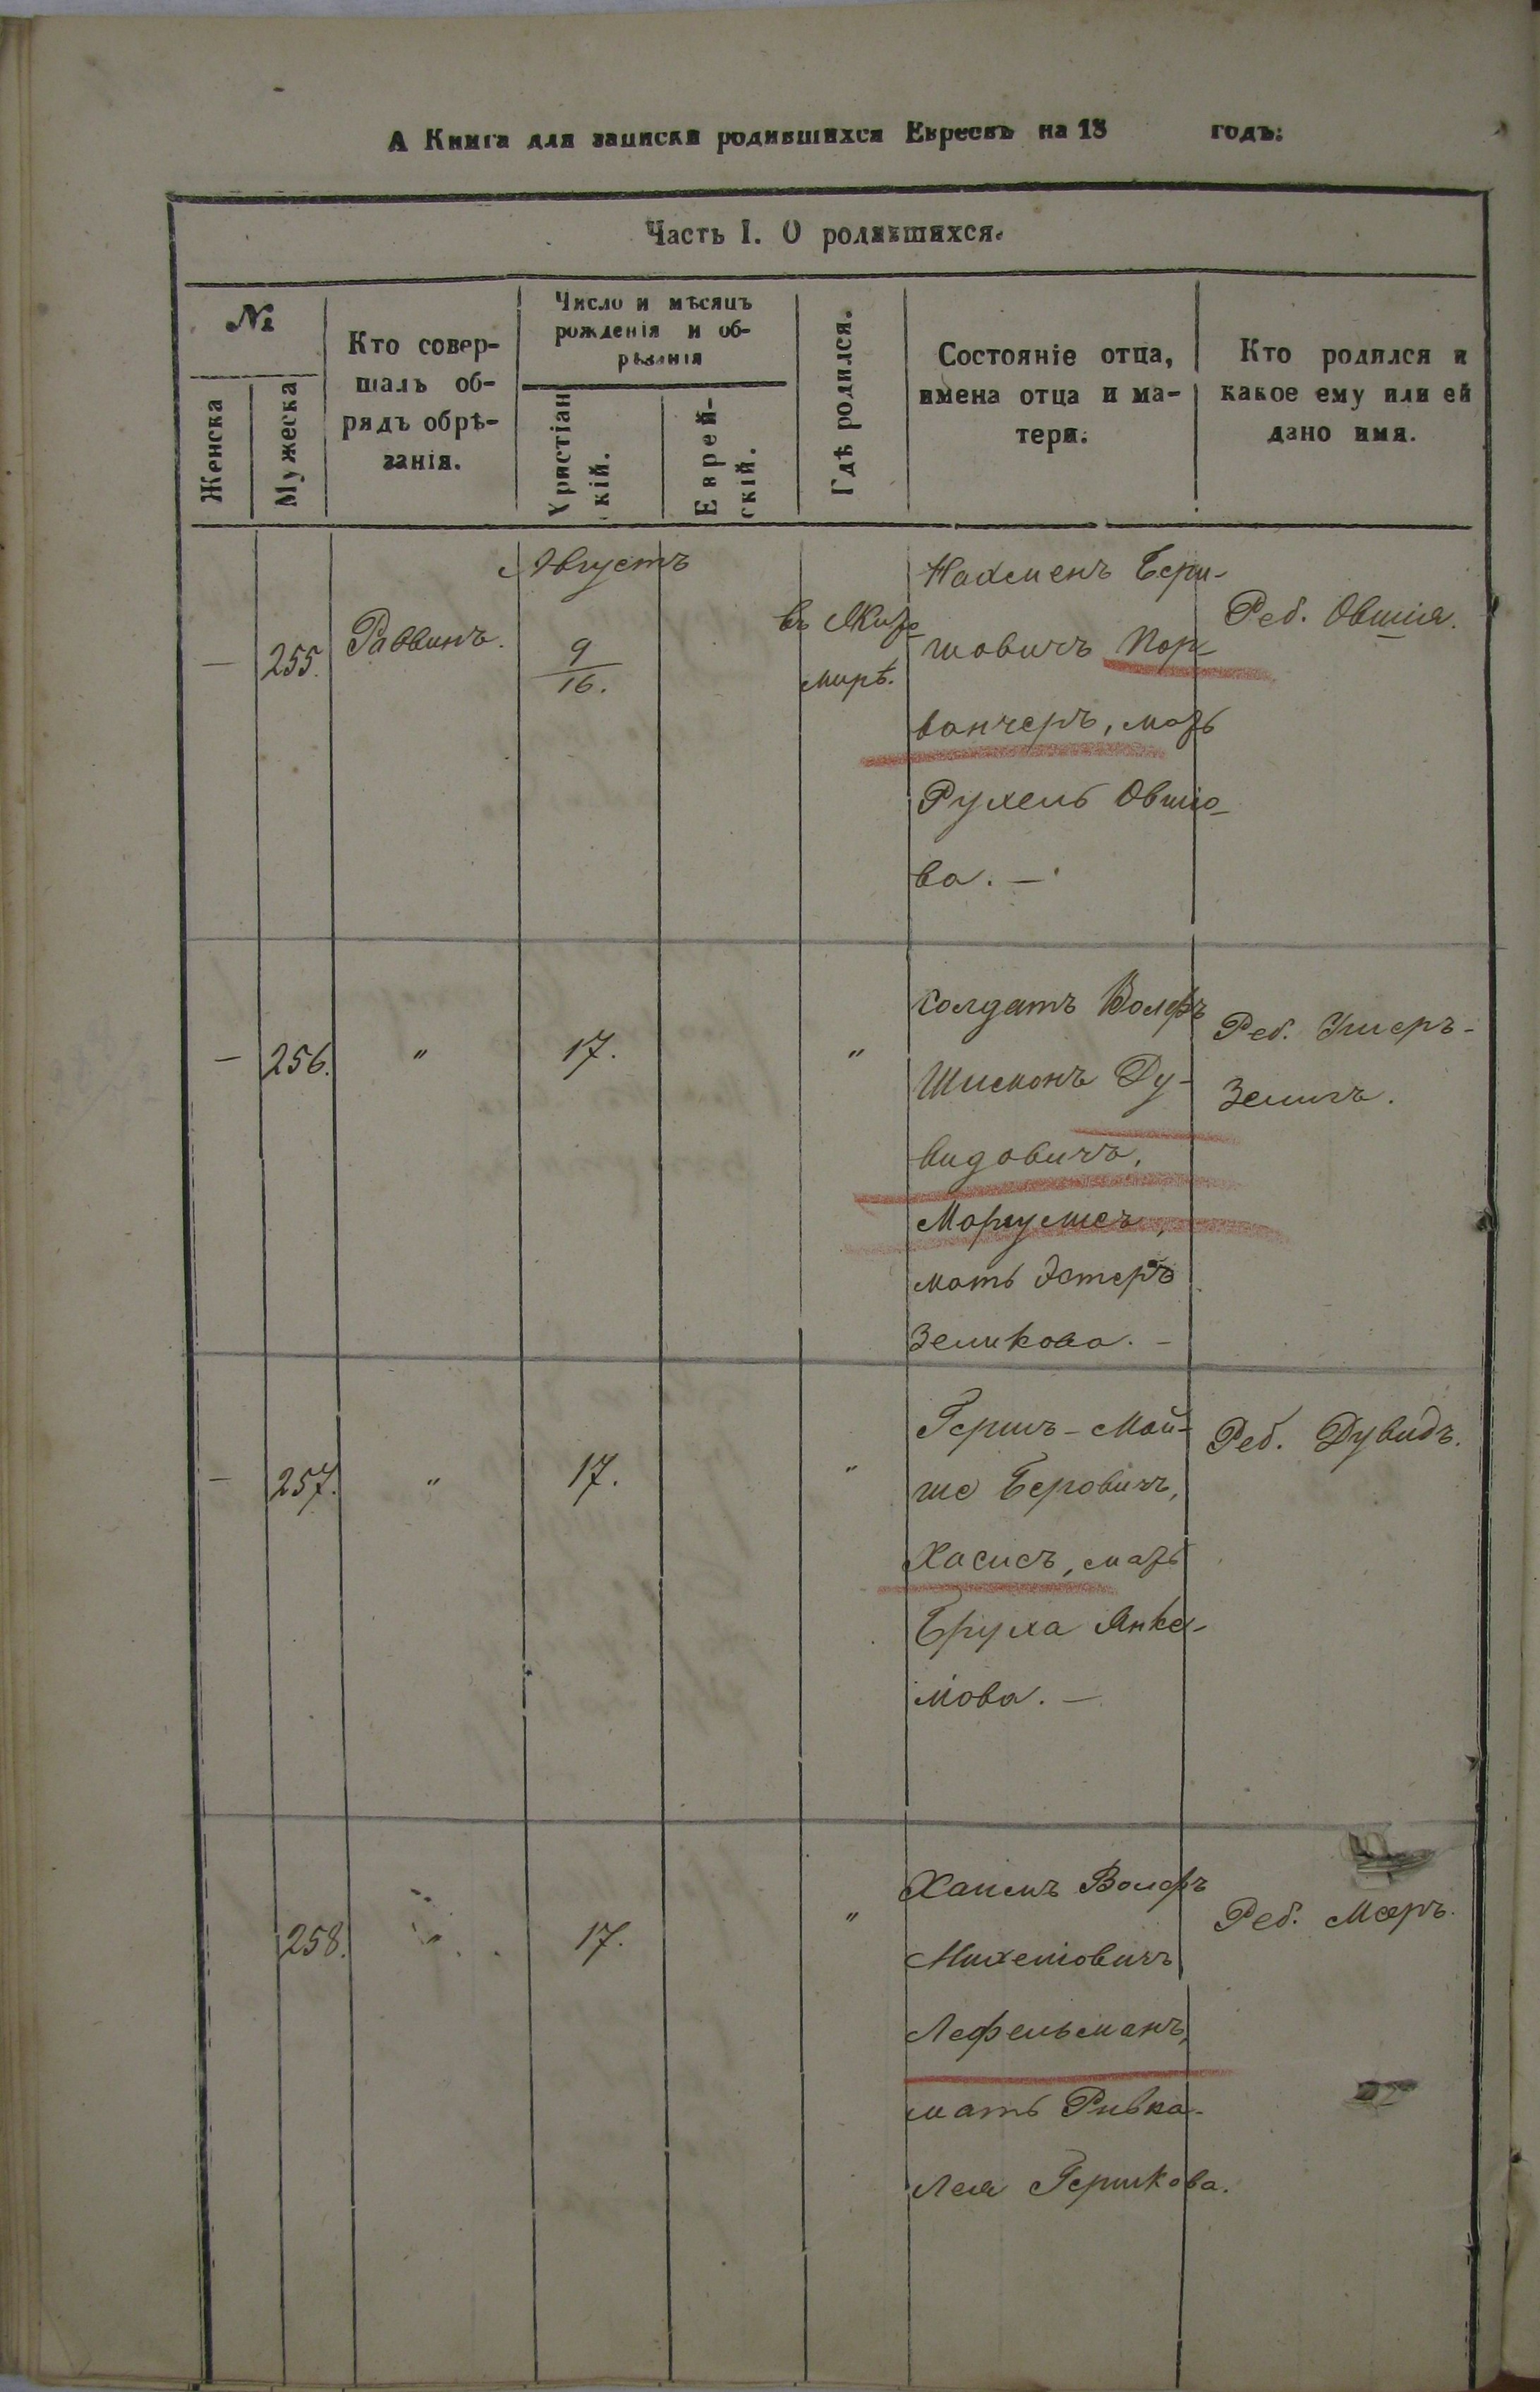 А Книга для записки родившихся Евреевъ на 18 годъ:
Часть I. О родившихся.
№
Женска
Мужеска
Кто совер-
шалъ об-
рядъ обрѣ-
занія.
Число и мѣсяцъ
рожденія и об-
рѣзанія
Христіан
скій.
Еврей-
скій.
Гдѣ родился.
Состояніе отца,
имена отца и ма-
тери.
Кто родился и
какое ему или ей
дано имя.
Августъ
—
255.
Раввинъ.
9
16.
въ Жито
мирѣ.
Нахменъ Бер-
шовичъ Пор-
ванчеръ, мать
Рухель Овшіо-
ва. —
Реб. Овшія.
—
256.
"
17.
"
Солдатъ Вольфъ
Шисмонъ Ду-
видовичъ,
Моргулисъ,
мать Эстеръ
Зеликова. —
Реб. Ушеръ-
Зелигъ.
—
257.
"
17.
"
Гершъ-Мой-
ше Беровичъ,
Хасисъ, мать
Бруха Янке-
лова. —
Реб. Дувидъ.
258.
"
17.
"
Хаимъ Вольфъ
Михеліовичъ
Лефельманъ,
мать Ривка-
Лея Гершкова.
Реб. Мееръ.